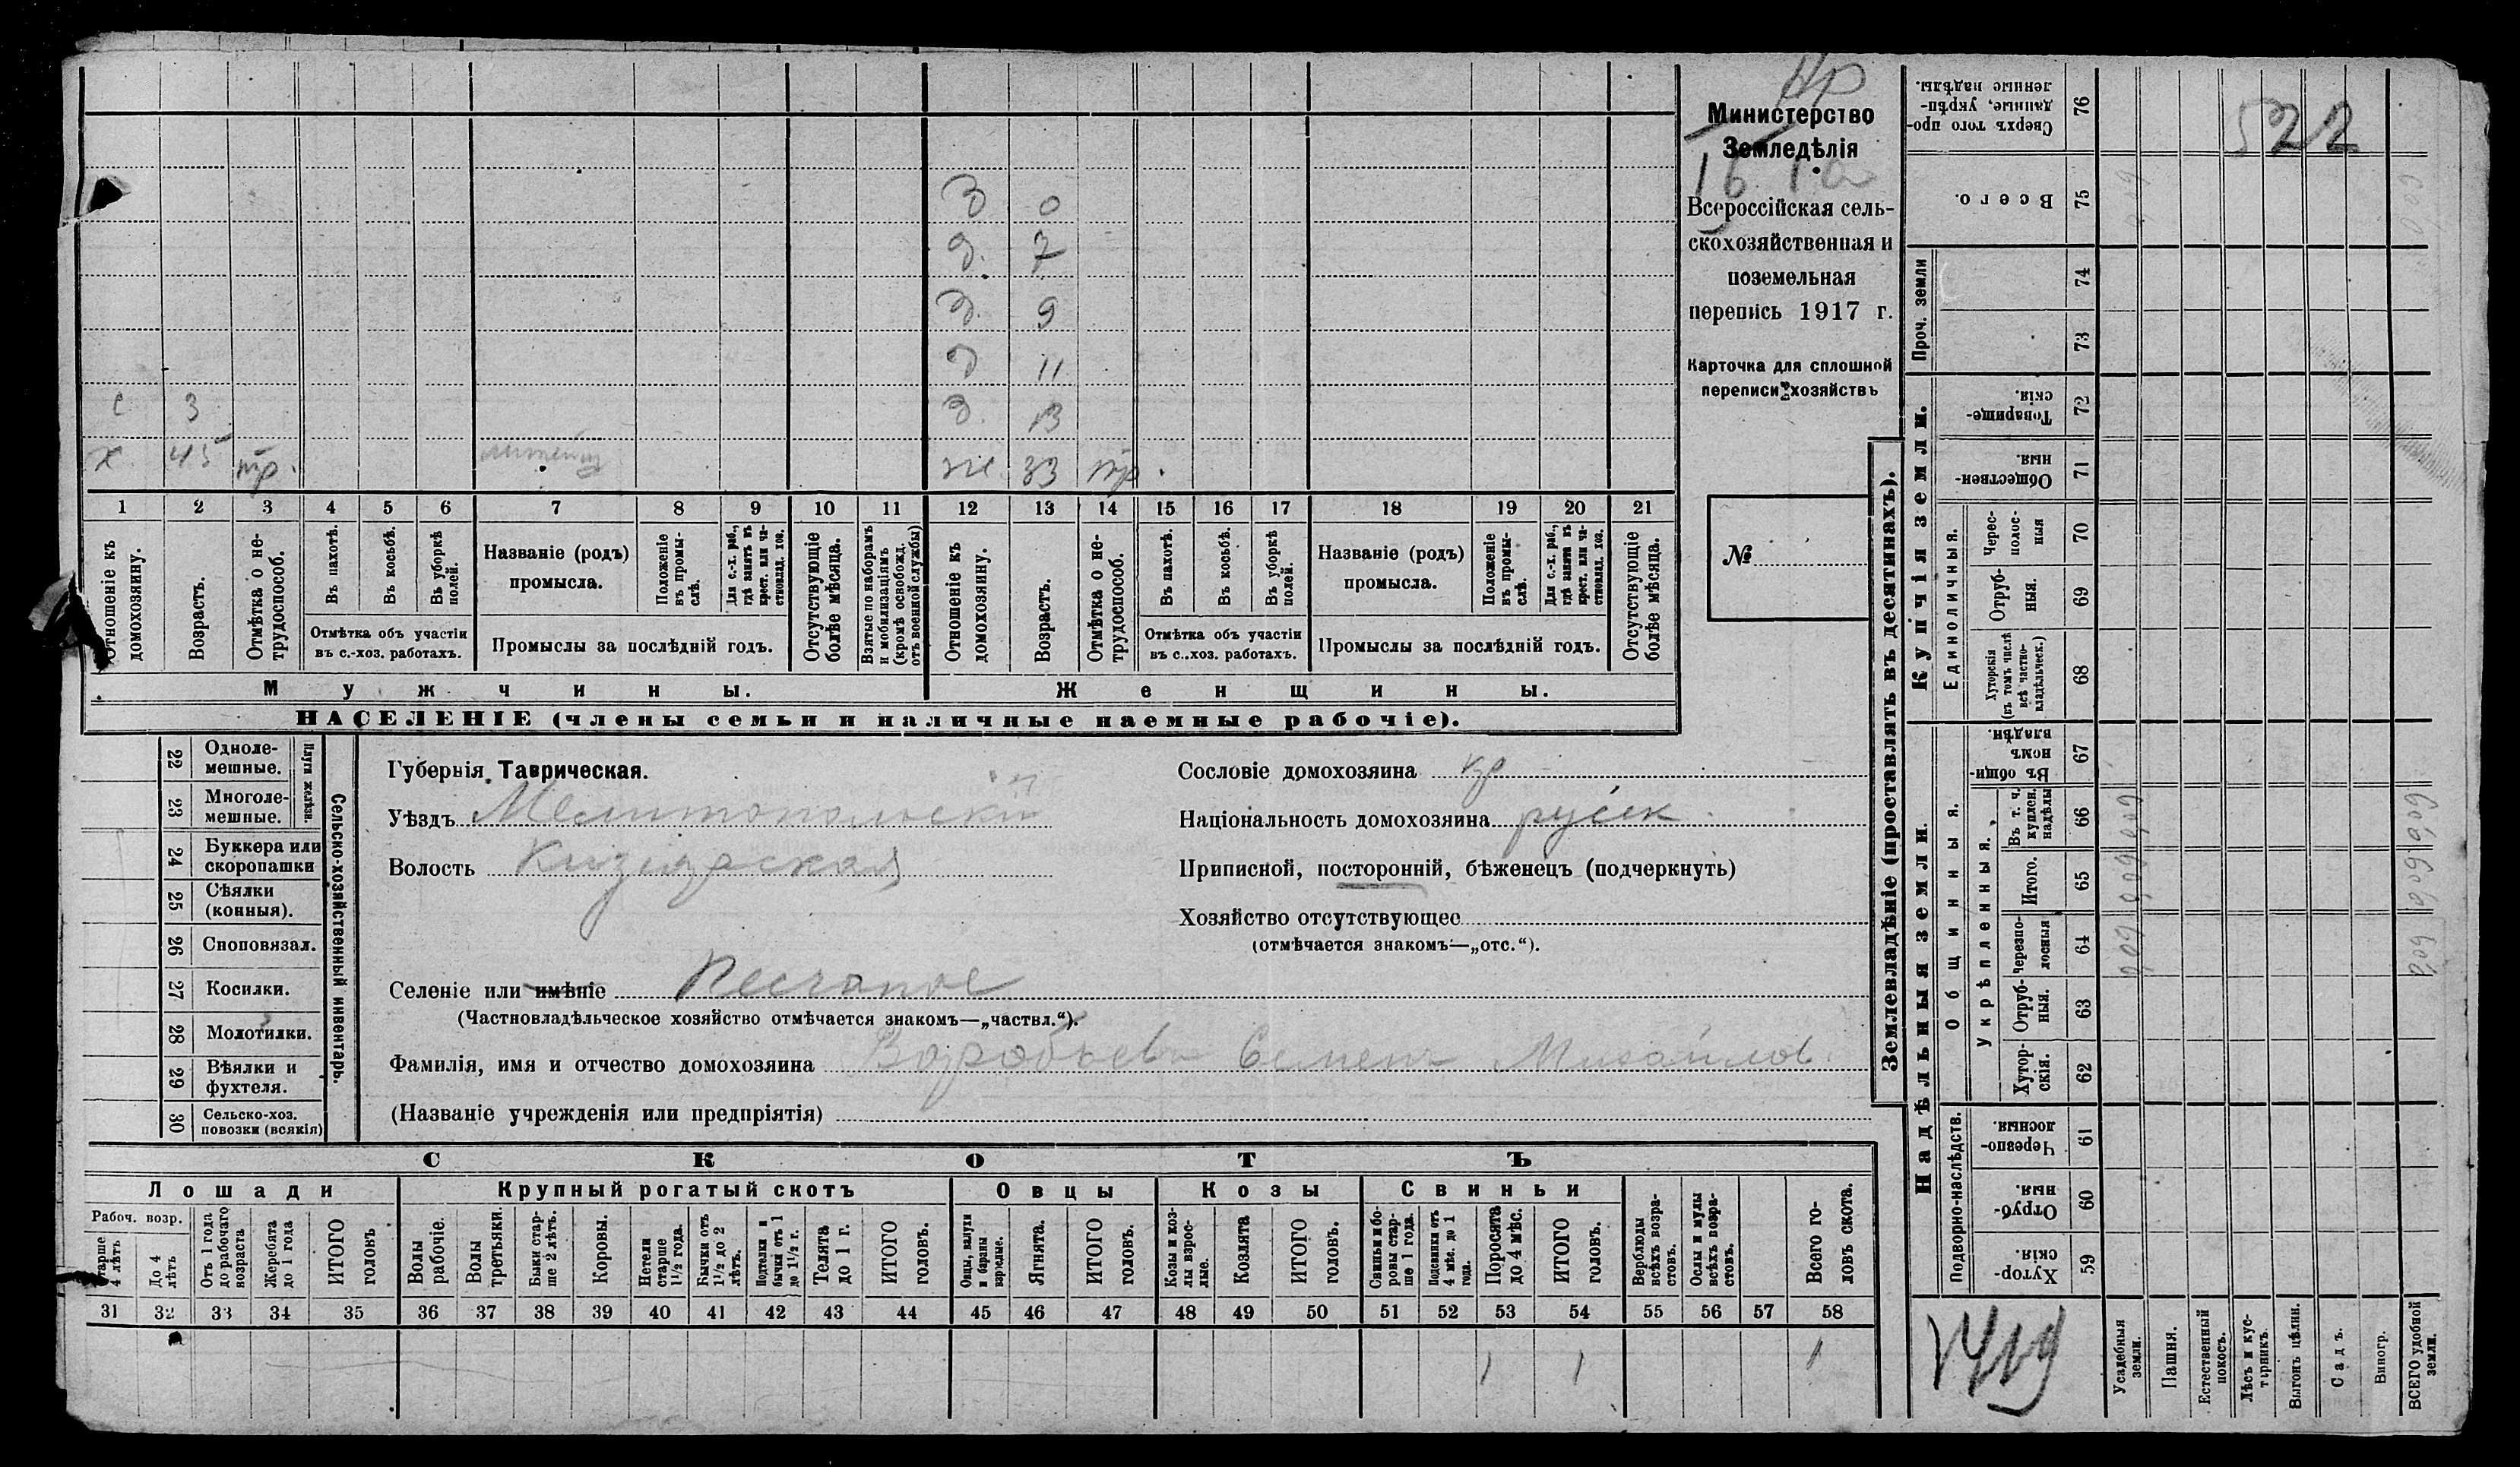 З 0
д. 7
д. 9
д 11
с 3 д. 13
х 45 тр. ж 33 тр.
1 2 3 4 5 6 7 8 9 10 11 12 13 14 15 16 17 18 19 20 21
Отношеніе къ домохозяину.
Возрастъ.
Отмѣтка о не-трудоспособ.
Въ пахотѣ.
Въ косьбѣ.
Въ уборкѣ полей.
Отмѣтка объ участіи
въ с.-хоз. работахъ.
Названіе (родъ)
промысла.
Положеніе въ промы-слѣ.
Для с.-х. раб., гдѣ занятъ въ крест. или ча-стновлад. хоз.
Промыслы за послѣдній годъ.
Отсутствующіе болѣе мѣсяца.
Взятые по наборамъ и мобилизаціямъ (кромѣ освобожд. отъ военной службы)
Отношеніе къ домохозяину.
Возрастъ.
Отмѣтка о не-трудоспособ.
Въ пахотѣ.
Въ косьбѣ.
Въ уборкѣ полей.
Отмѣтка объ участіи
въ с.-хоз. работахъ.
Названіе (родъ)
промысла.
Положеніе въ промы-слѣ.
Для с.-х. раб., гдѣ занята въ крест. или ча-стновлад. хоз.
Промыслы за послѣдній годъ.
Отсутствующіе болѣе мѣсяца.
Мужчины. Женщины.
НАСЕЛЕНІЕ (члены семьи и наличные наемные рабочіе).
Министерство
Земледѣлія
Всероссійская сель-
скохозяйственная и
поземельная
перепись 1917 г.
Карточка для сплошной
переписи хозяйствъ
№
22 Одноле-мешные.
23 Многоле-мешные.
Плуги желѣзн.
24 Буккера или скоропашки
25 Сѣялки (конныя).
26 Сноповязал.
27 Косилки.
28 Молотилки.
29 Вѣялки и фухтеля.
30 Сельско-хоз. повозки (всякія)
Сельско-хозяйственный инвентарь.
Губернія Таврическая.
Уѣздъ Мелитопольскій
Волость Кизіярская
Селеніе или имѣніе Песчаное
(Частновладѣльческое хозяйство отмѣчается знакомъ—„частвл.“).
Фамилія, имя и отчество домохозяина Воробьевъ Семенъ Михайлов.
(Названіе учрежденія или предпріятія)
Сословіе домохозяина кр
Національность домохозяина русск.
Приписной, посторонній, бѣженецъ (подчеркнуть)
Хозяйство отсутствующее
(отмѣчается знакомъ—„отс.“).
СКОТЪ
Лошади Крупный рогатый скотъ Овцы Козы Свиньи
Рабоч. возр.
Старше 4 лѣтъ
До 4 лѣтъ
Отъ 1 года до рабочаго возраста
Жеребята до 1 года
ИТОГО головъ
Волы рабочіе.
Волы третьяки.
Быки стар-ше 2 лѣтъ.
Коровы.
Нетели старше 1½ года.
Бычки отъ 1½ до 2 лѣтъ.
Подтелки и бычки отъ 1 до 1½ г.
Телята до 1 г.
ИТОГО головъ.
Овцы, валухи и бараны взрослые.
Ягнята.
ИТОГО головъ.
Козы и коз-лы взрос-лые.
Козлята
ИТОГО головъ.
Свиньи и бо-ровы стар-ше 1 года.
Подсвинки отъ 4 мѣс. до 1 года.
Поросята до 4 мѣс.
ИТОГО головъ.
Верблюды всѣхъ возра-стовъ.
Ослы и мулы всѣхъ возра-стовъ.
Всего го-ловъ скота.
31 32 33 34 35 36 37 38 39 40 41 42 43 44 45 46 47 48 49 50 51 52 53 54 55 56 57 58
1 1 1
Землевладѣніе (проставлять въ десятинахъ).
Сверхъ того про-данные, укрѣп-ленные надѣлы. 76
522
Всего. 75
Проч. земли
74
73
Купчія земли.
Товарище-скія. 72
Обществен-ныя. 71
Единоличныя.
Черес-полос-ныя 70
Отруб-ныя. 69
Хуторскія (въ томъ числѣ всѣ частно-владѣльческ.) 68
Надѣльныя земли.
Общинныя.
Въ общин-номъ владѣн. 67
Укрѣпленныя.
Въ т. ч. куплен. надѣлы 66
Итого. 65
Черезпо-лосныя 64
Отруб-ныя. 63
Хутор-скія. 62
Подворно-наслѣдств.
Черезпо-лосныя. 61
Отруб-ныя. 60
Хутор-скія. 59
Усадебныя земли.
Пашня.
Естественный покосъ.
Лѣсъ и кус-тарникъ.
Выгонъ цѣлин.
Садъ.
Виногр.
ВСЕГО удобной земли.